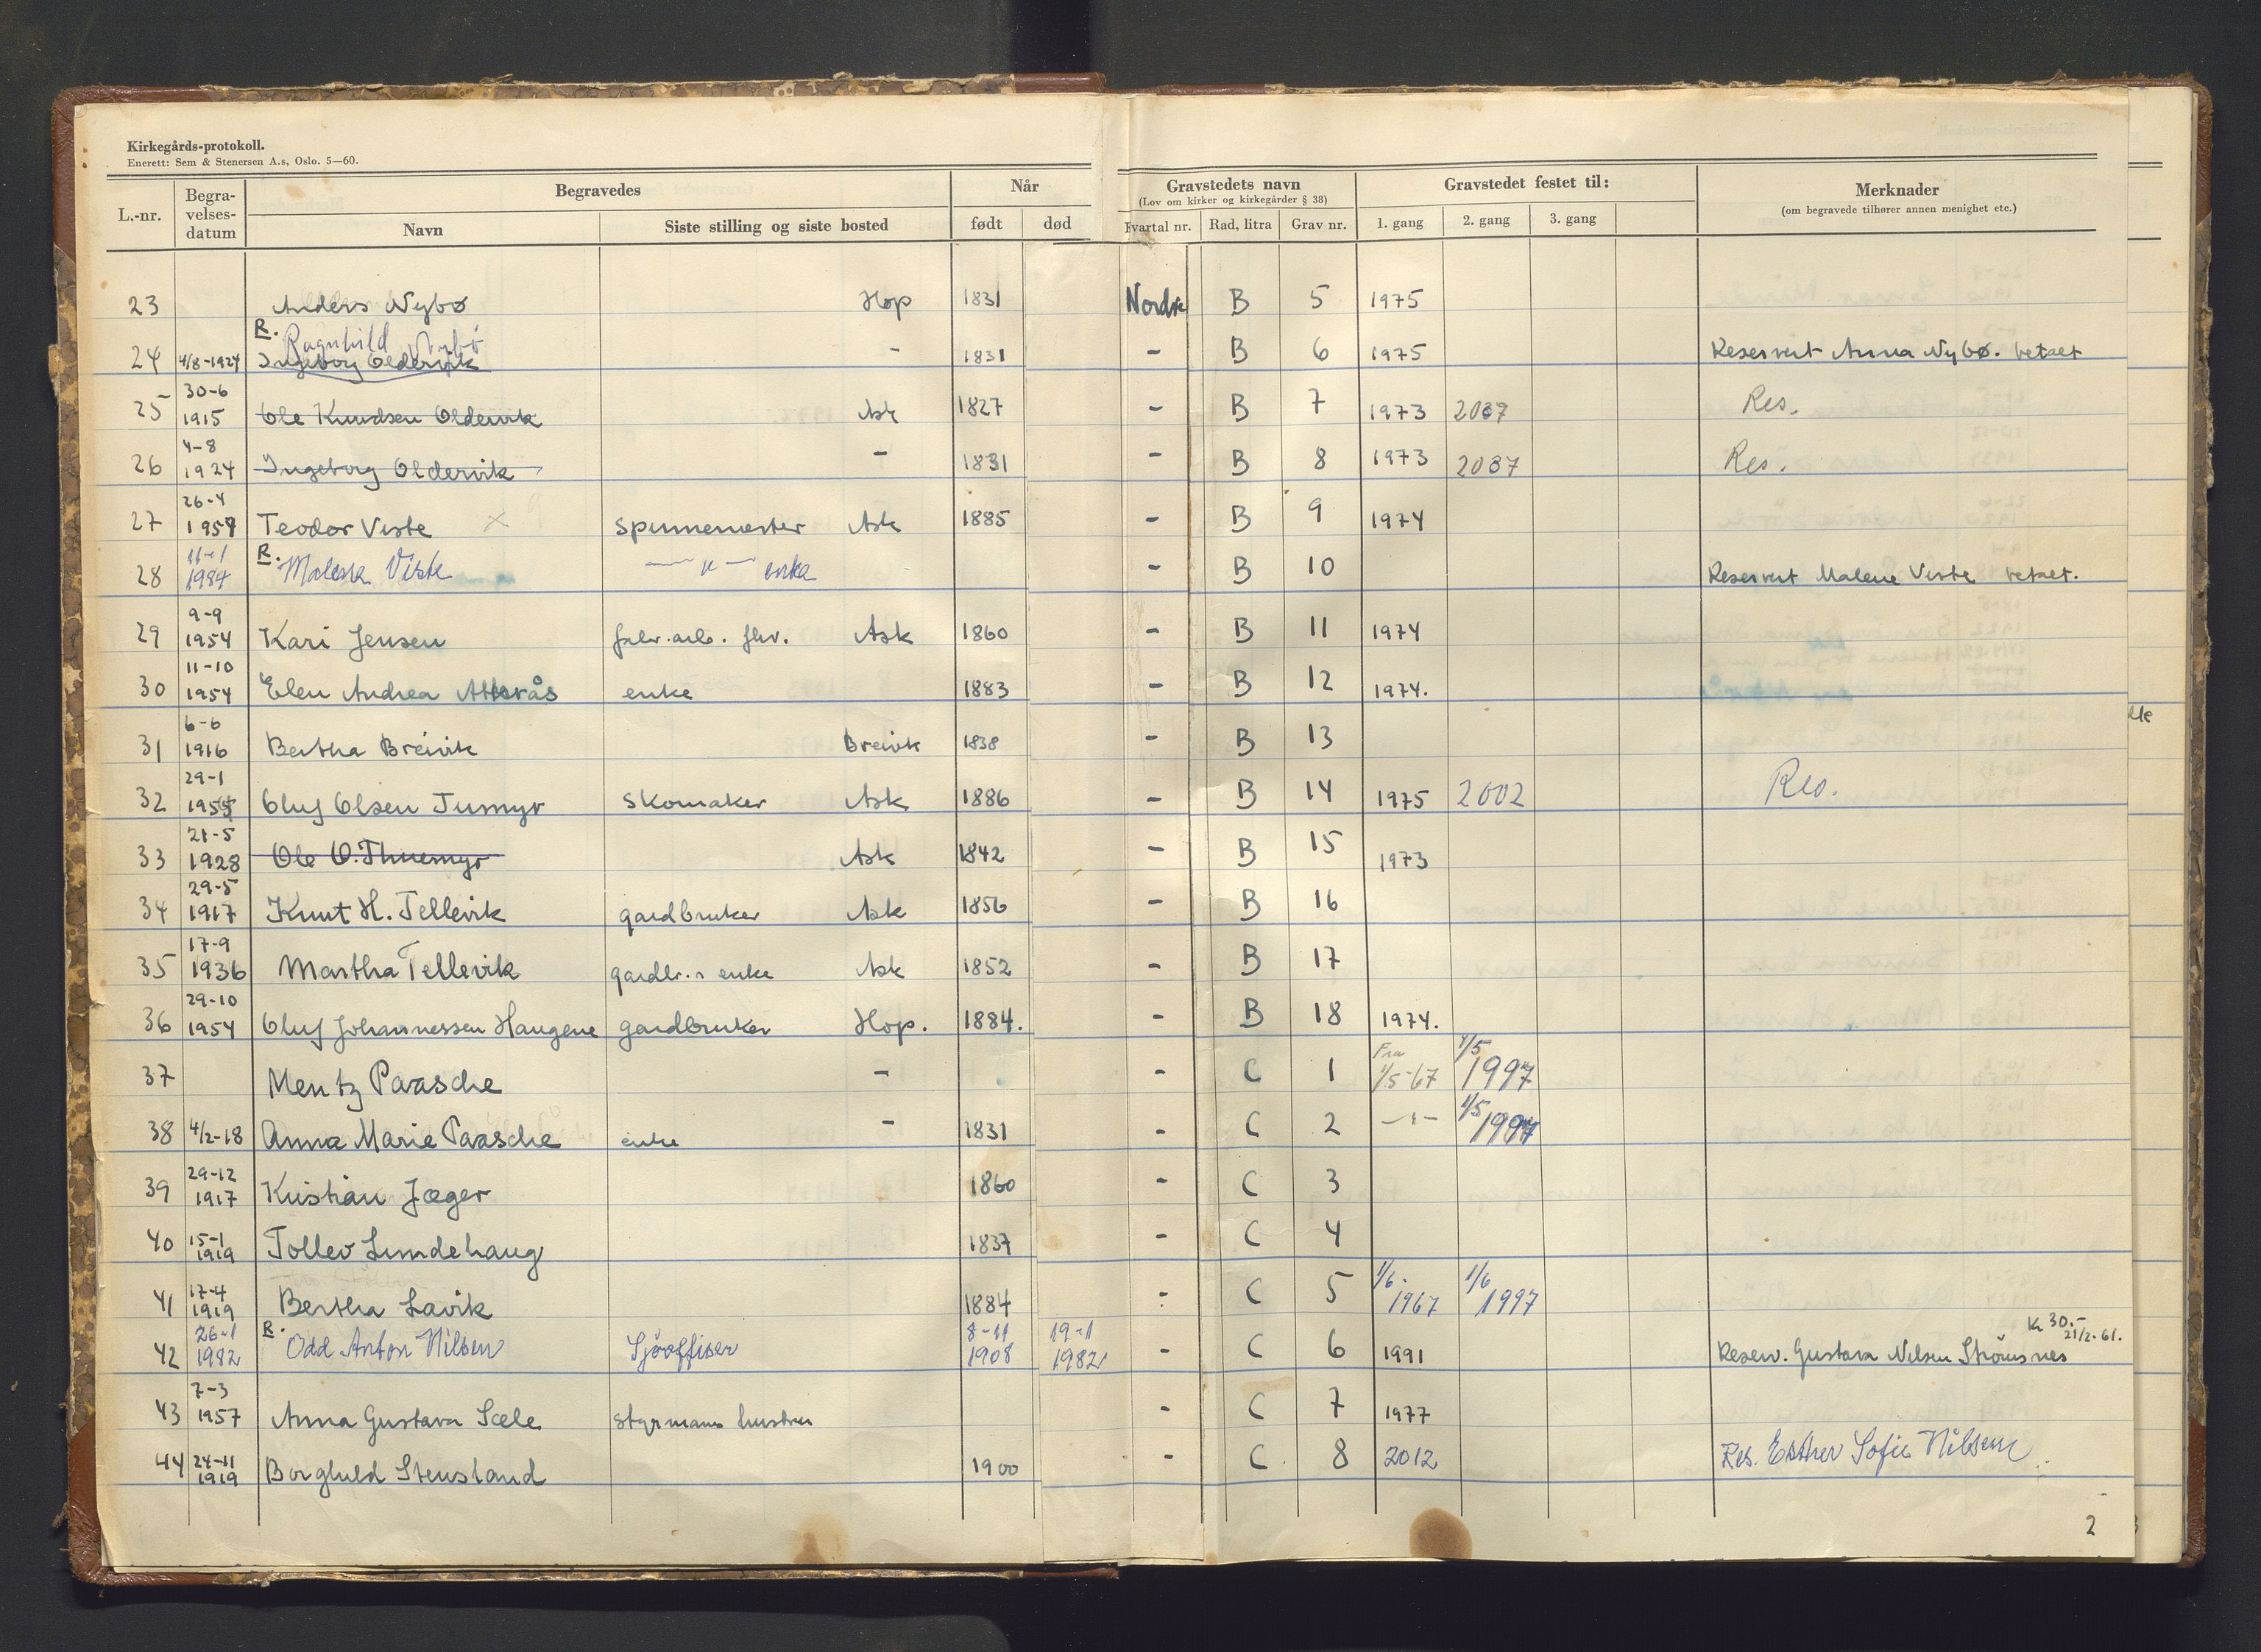 Kirkegårds-protokoll.
Enerett: Sem & Stenersen A.s, Oslo. 5—60.
L.-nr. Begra-velses-datum Begravedes Når Gravstedets navn Gravstedet festet til: Merknader
(Lov om kirker og kirkegårder § 38) (om begravede tilhører annen menighet etc.)
Navn Siste stilling og siste bosted født død Kvartal nr. Rad, litra Grav nr. 1. gang 2. gang 3. gang
23 Anders Nybø Hop 1831 Nordre B 5 1975
R. Ragnhild Nybø
24 4/8-1924 Ingeborg Oldervik - 1831 - B 6 1975 Reservert Anna Nybø. betalt
25 30-6 1915 Ole Knudsen Oldervik Ask 1827 - B 7 1973 2037 Res.
26 4-8 1924 Ingeborg Oldervik - 1831 - B 8 1973 2037 Res.
27 26-4 1954 Teodor Viste x spinnemester Ask 1885 - B 9 1974
28 11-1 1984 R. Malene Viste — " — enke - B 10 Reservert Malene Viste betalt.
29 9-9 1954 Kari Jensen fabr. arb. Ask 1860 - B 11 1974
30 11-10 1954 Elen Andrea enke 1883 - B 12 1974.
31 6-6 1916 Bertha Breivik Breivik 1838 - B 13
32 29-1 1955 Oluf Olsen Tumyr skomaker Ask 1886 - B 14 1975 2002 Res.
33 21-5 1928 Ole O. Thuemyr Ask 1842 - B 15 1973
34 29-5 1917 Knut H. Tellevik gardbruker Ask 1856 - B 16
35 17-9 1936 Martha Tellevik gardbr.s enke Ask 1852 - B 17
36 29-10 1954 Oluf Johannessen Haugene gardbruker Hop. 1884. - B 18 1974.
37 Mentz Paasche - - C 1 Fra 1/5-67 1/5 1997
38 4/2-18 Anna Marie Paasche enke - 1831 - C 2 -"- 1/5 1997
39 29-12 1917 Kristian Jæger 1860 - C 3
40 15-1 1919 Tollev Lundehaug 1837 - C 4
41 17-4 1919 Bertha Lavik 1884 - C 5 1/6. 1967 1/6 1997
42 26-1 1982 R. Odd Anton Nilsen Sjøoffiser 8-11 1908 19-1 1982 - C 6 1991 Reserv. Gustava Nilsen Strømsnes Kr 30.- 21/2-61.
43 7-3 1957 Anna Gustava Sæle styrmans hustru - C 7 1977
44 24-11 1919 Borghild Stensland 1900 - C 8 2012 Res. Esther Sofie Nilsen
2